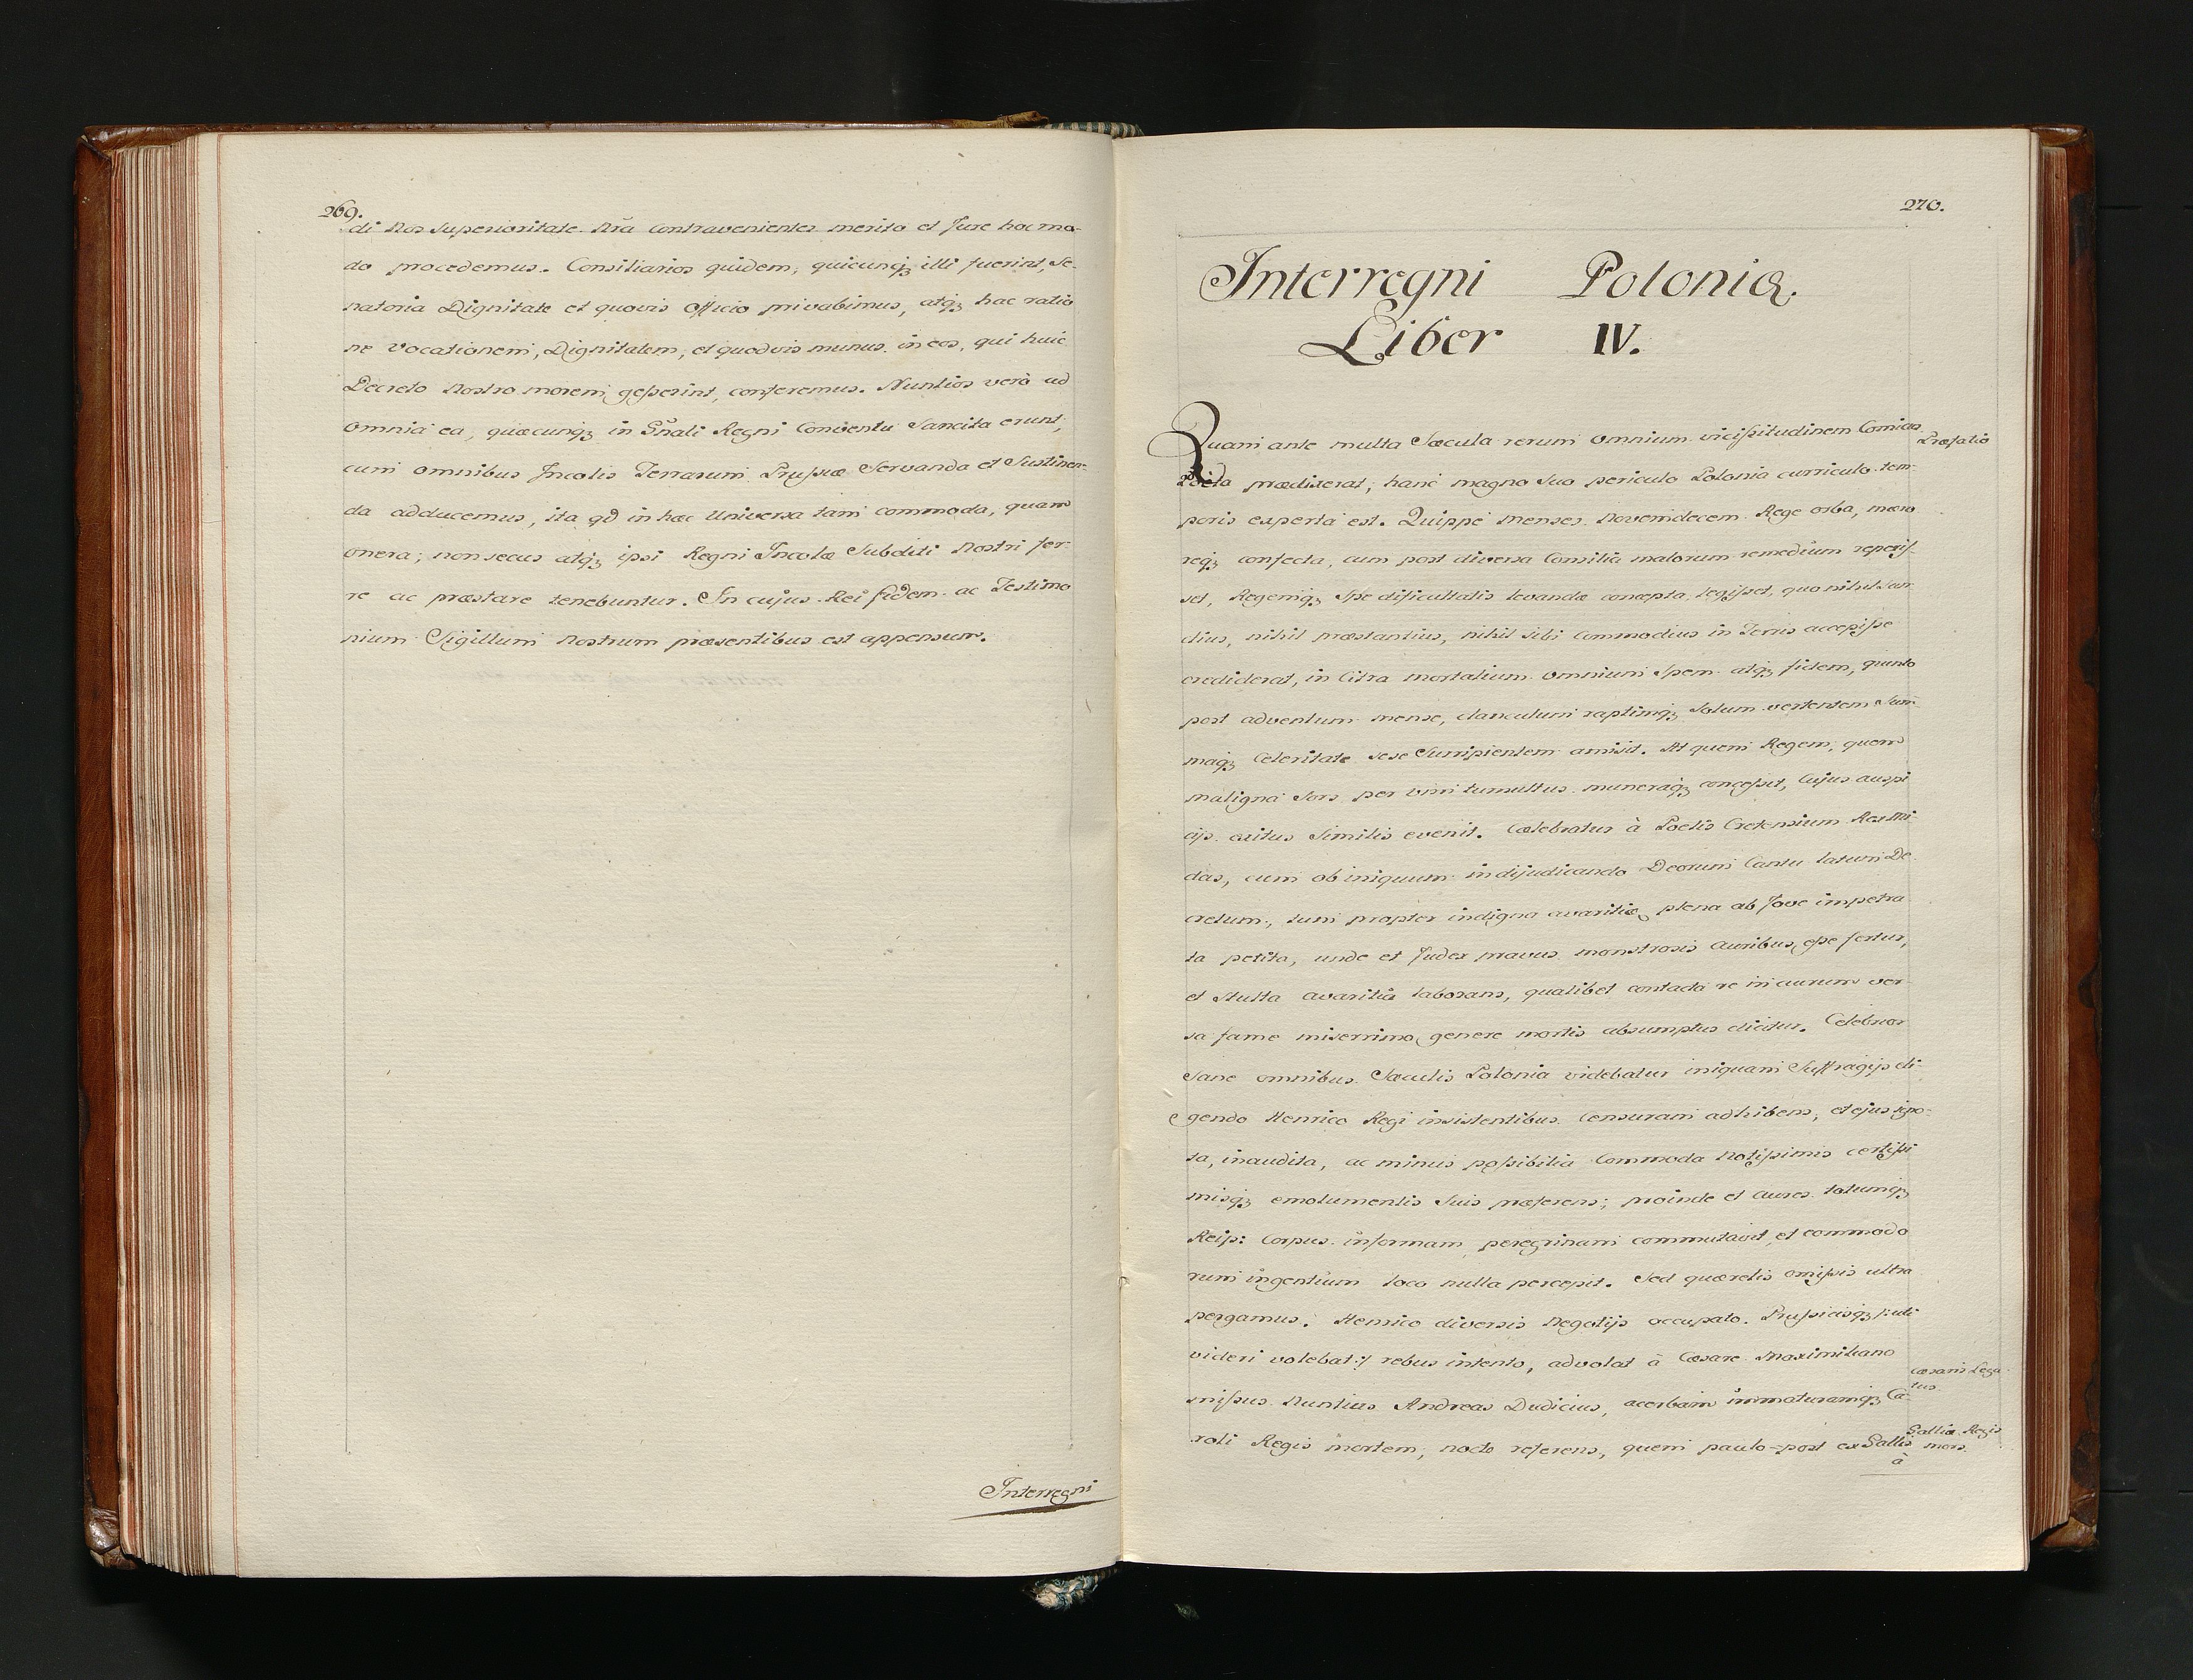 269.
di Nos Superioritate Nrã contravenientes merito et Jure hoc mo-
do procedemus. Consiliarios quidem, quicunq; illi fuerint, Se-
natoria Dignitate et quovis officio privabimus, atq; hac ratio
ne Vocationem, Dignitatem, et quodvis munus in eos, qui huic
Decreto Nostro morem gesserint, conferemus. Nuntios verò ad
omnia ea, quæcunq; in Gñali Regni Conventu Sancita erunt,
cum omnibus Incolis Terrarum Prussiæ Servanda et Sustinen-
da adducemus, ita qd in hæc Universa tam commoda, quam
onera; non secus atq; ipsi Regni Incolæ Subditi Nostri fer-
re ac præstare tenebuntur. In cujus Rei fidem ac Testimo
nium Sigillum Nostrum præsentibus est appensum.
Interregni
270.
Interregni Poloniæ.
Liber IV.
Quam ante multa Sæcula rerum omnium vicissitudinem Comicus
Præfatio
Poëta prædixerat, hanc magno suo periculo Polonia curriculo tem-
poris experta est. Quippe menses Novemdecem Rege orba, mæro
req; confecta, cum post diversa Consilia malorum remedium reperis-
set, Regemq; Spe dificultatis levandæ concepta legisset, quo nihil
dius, nihil præstantius, nihil sibi commodius in Terris accepisse
crediderat, in Citra mortalium omnium Spem atq; fidem, quinto
post adventum mense, clanculum raptimq; Solum vertentem Sum
maq; Celeritate sese Surripientem amisit. At quem Regem, quem
maligna Sors per vim tumultus muneraq; concessit, Cujus auspi
cijs exitus Similis evenit. Celebratus à Poetis Cretensium Rex Mi-
das, cum ob iniquum in dijudicando Deorum Cantu latum De-
cretum, tum propter indigna avaritiæ plena ab Jove impetra
ta petita, unde et Judex pravus monstrosis auribus esse fertur,
et Stulta avaritia laborans, qualibet contacta re in aurum ver
sa fame miserrimo genere mortis absumptus dicitur. Celebrior
Sane omnibus Sæculis Polonia videbatur iniquam Suffragijs eli-
gendo Henrico Regi insistentibus Censuram adhibens, et ejus igno-
ta, inaudita, ac minus possibilia Commoda Notissimis certissi
misq; emolumentis Suis præferens; proinde et aures totumq;
Reip: Corpus in formam peregrinam commutavit, et commodo
rum ingentium loco nulla percepit. Sed quærelis omissis ultra
pergamus. Henrico diversis Negotijs occupato. Prussicisq; /: uti
videri volebat :/ rebus intento, advolat à Cæsare Maximiliano
Cæsaris Lega
tus.
missus Nuntius Andreas Dudicius, acerbam immaturamq; Ca-
roli Regis mortem, nocte referens, quem paulo-post ex Gallis
Galliæ Regis
mors.
à